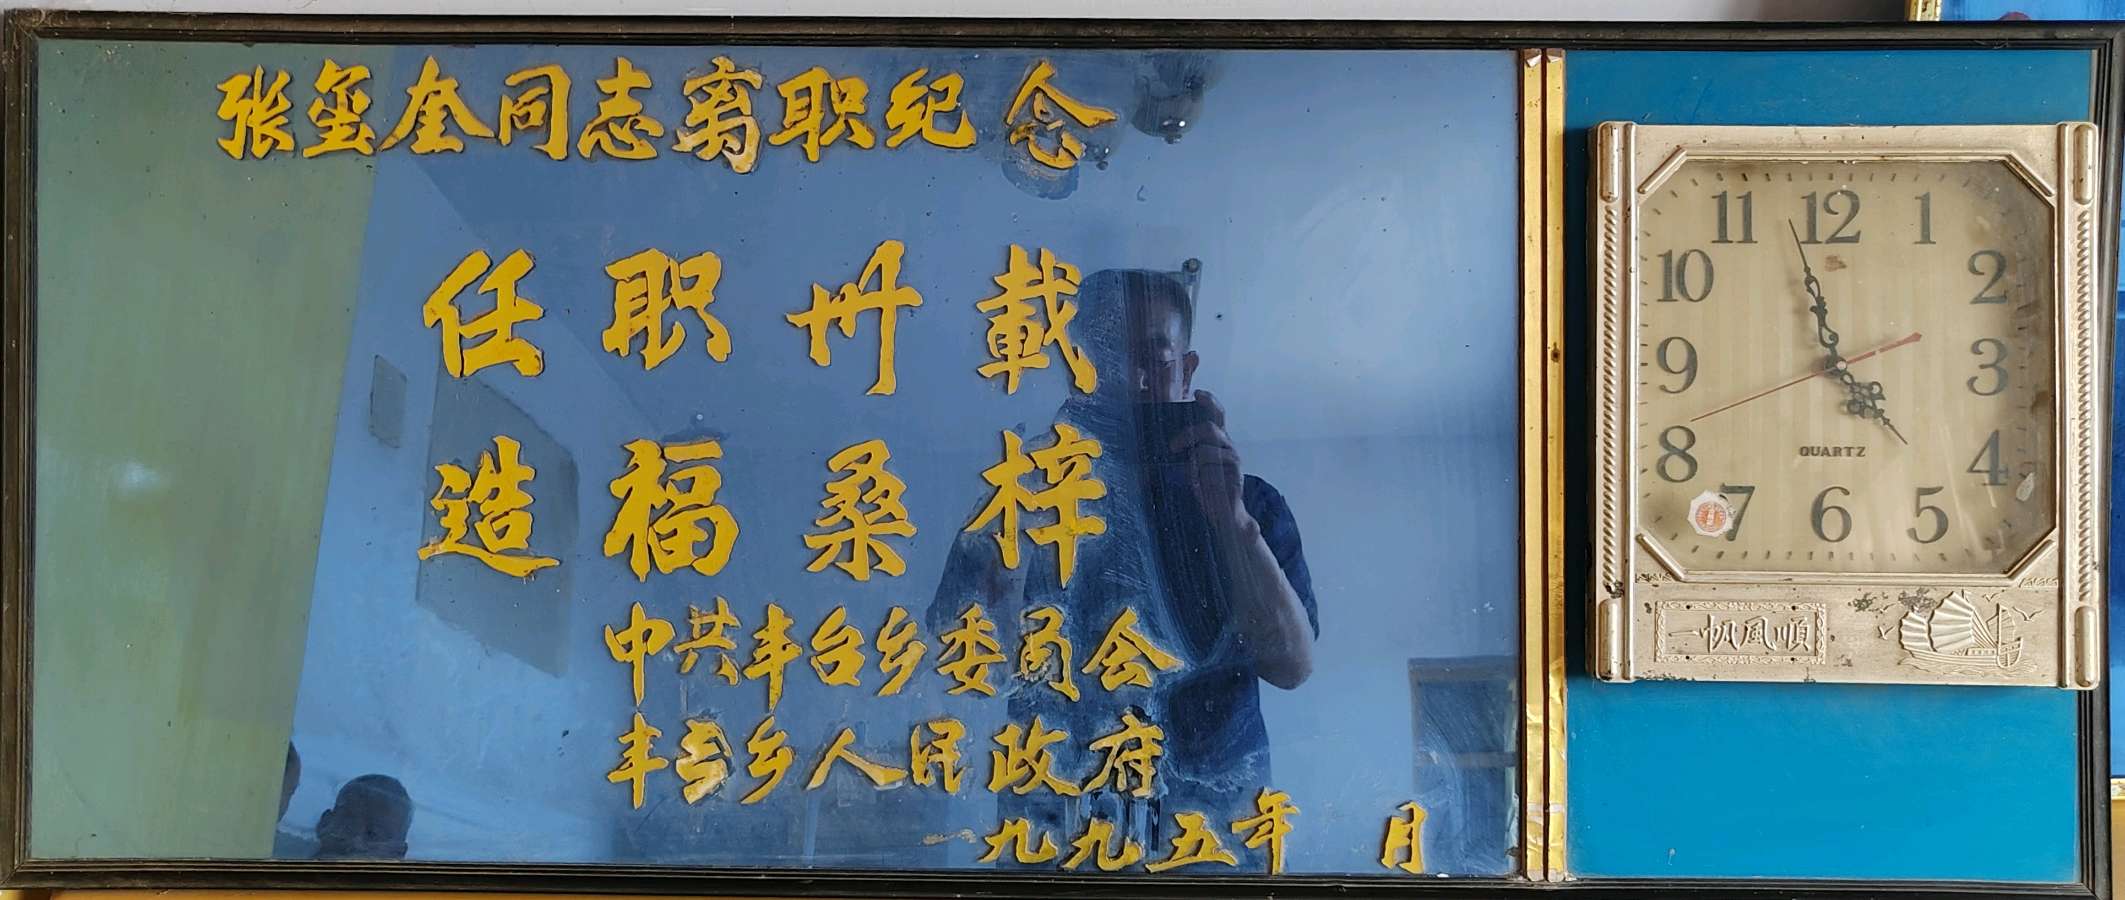 张玺奎同志离职纪念
任职卅載
造福桑梓
中共丰台乡委员会
丰台乡人民政府
一九九五年 月
11 12 1
10 2
9 3
8 4
7 6 5
QUARTZ
一帆風順